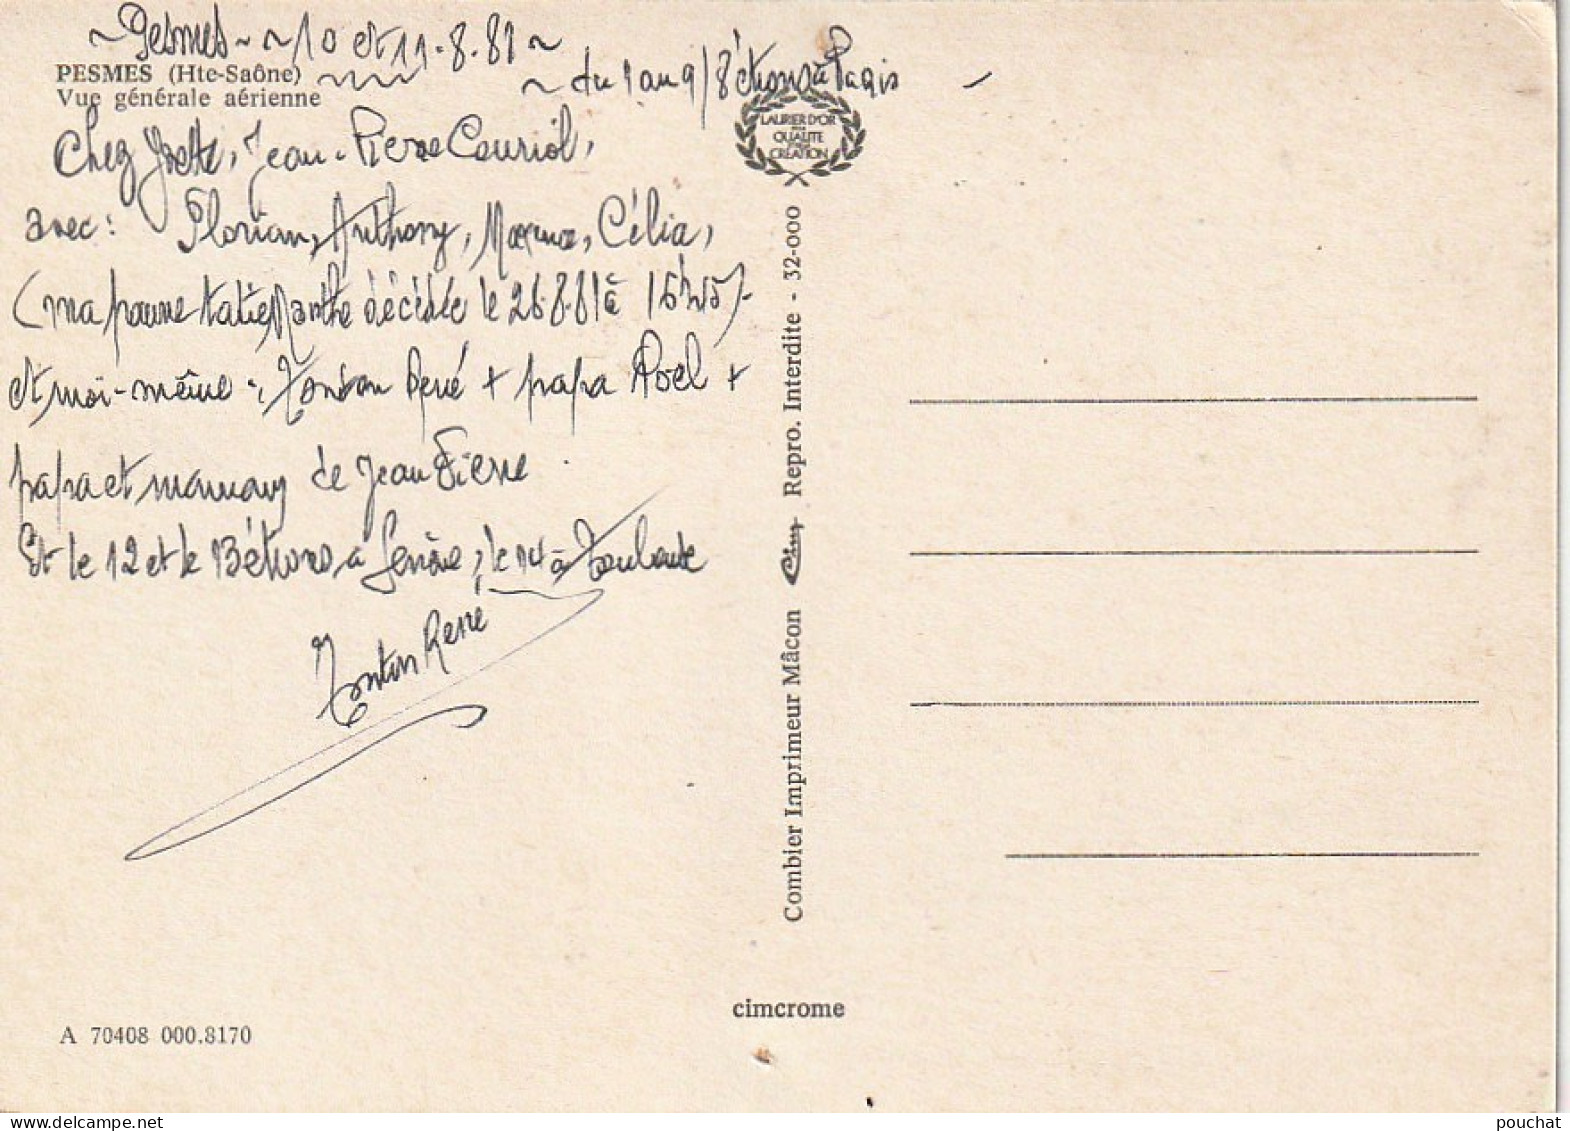 ~ Pesmes ~ ~ 10 et 11.8.81 ~
PESMES (Hte-Saône)
~ du 1 au 9/8 étions à Paris
Vue générale aérienne
Chez Yvette, Jean-Pierre Couriol,
LAURIER D'OR
DE LA
QUALITE
CREATION
avec : Florian, Anthony, Maxime, Célia,
(ma pauvre tatie Marthe décédée le 26.8.81 à 15h45)
et moi-même : Tonton René + papa Noel +
papa et maman de Jean Pierre
Et le 12 et le 13 étions à Genève, le 14 à Toulouse
Tonton René
Combier Imprimeur Mâcon Cim Repro. Interdite - 32-000
cimcrome
A 70408 000.8170
pouchat